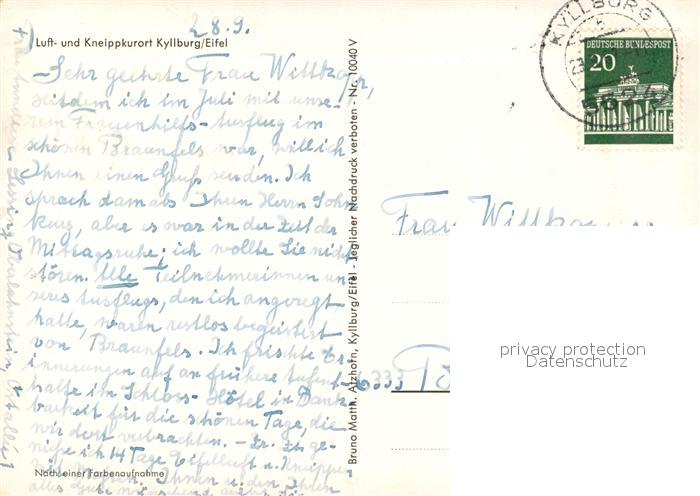 28.9.
Luft- und Kneippkurort Kyllburg/Eifel
Sehr geehrte Frau Wittkop,
seitdem ich im Juli mit unse-
rem Frauenhilfs-Ausflug im
schönen Braunfels war, will ich
Ihnen einen Gruß senden. Ich
sprach damals Ihren Herrn Sohn
kurz, aber es war in der Zeit der
Mittagsruhe; ich wollte Sie nicht
stören. Alle Teilnehmerinnen un-
seres Ausflugs, den ich angeregt
hatte, waren restlos begeistert
von Braunfels. Ich frischte Er-
innerungen auf an frühere Aufent-
halte im Schloss-Hotel in Dank-
barkeit für die schönen Tage, die
wir dort verbrachten. - Zr. Zt. ge-
nieße ich 14 Tage Eifelluft u. Kneipp-
Ihnen u. den Ihren
alles Gute
Nach einer Farbenaufnahme
Bruno Matth. Atzhofn, Kyllburg/Eifel - Jeglicher Nachdruck verboten - Nr. 10040 V
KYLLBURG
23
5524
DEUTSCHE BUNDESPOST
20
Frau
6333
privacy protection
Datenschutz